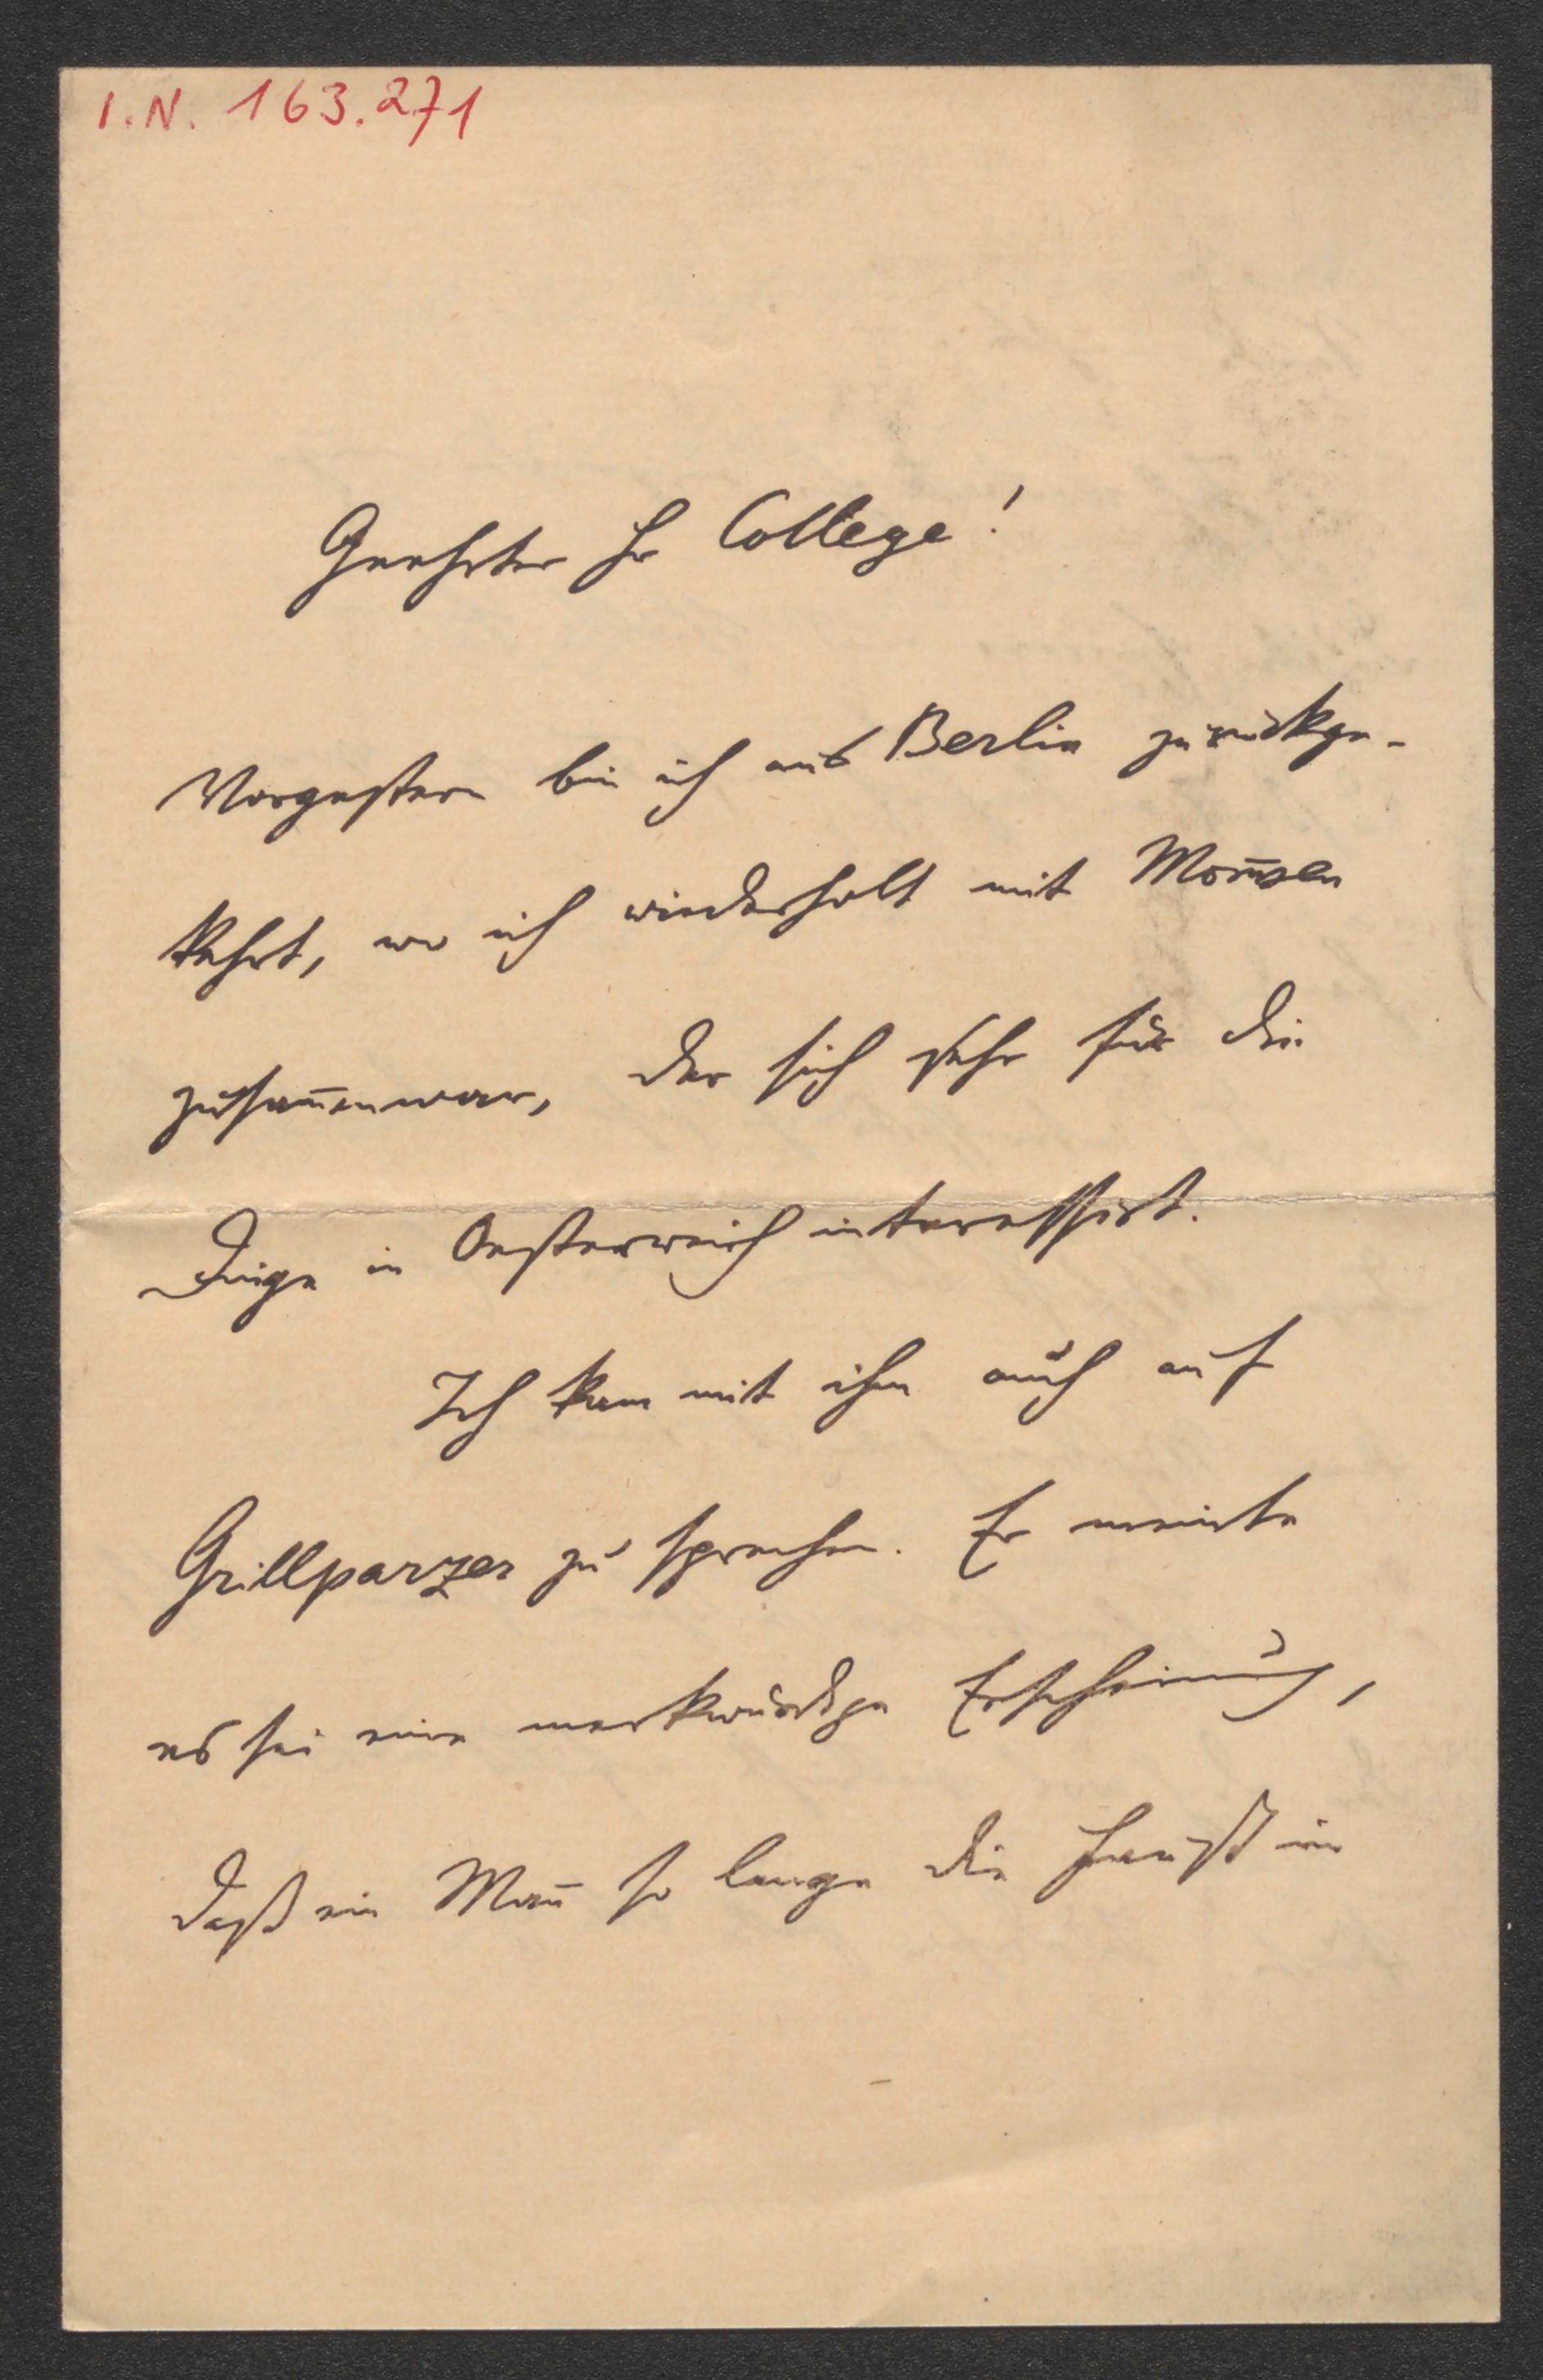 I.N. 163.271
Geehrter Hr College!
Vorgestern bin ich aus Berlin zurückge-
kehrt, wo ich wiederholt mit Mom̅sen
zusam̅enwar, der sich sehr für die
Dinge in Oesterreich interessirt.
Ich kam mit ihm auch auf
Grillparzer zu sprechen. Er meinte
es sei eine merkwürdige Erscheinung,
daß ein Man̅ so lange die Faust im